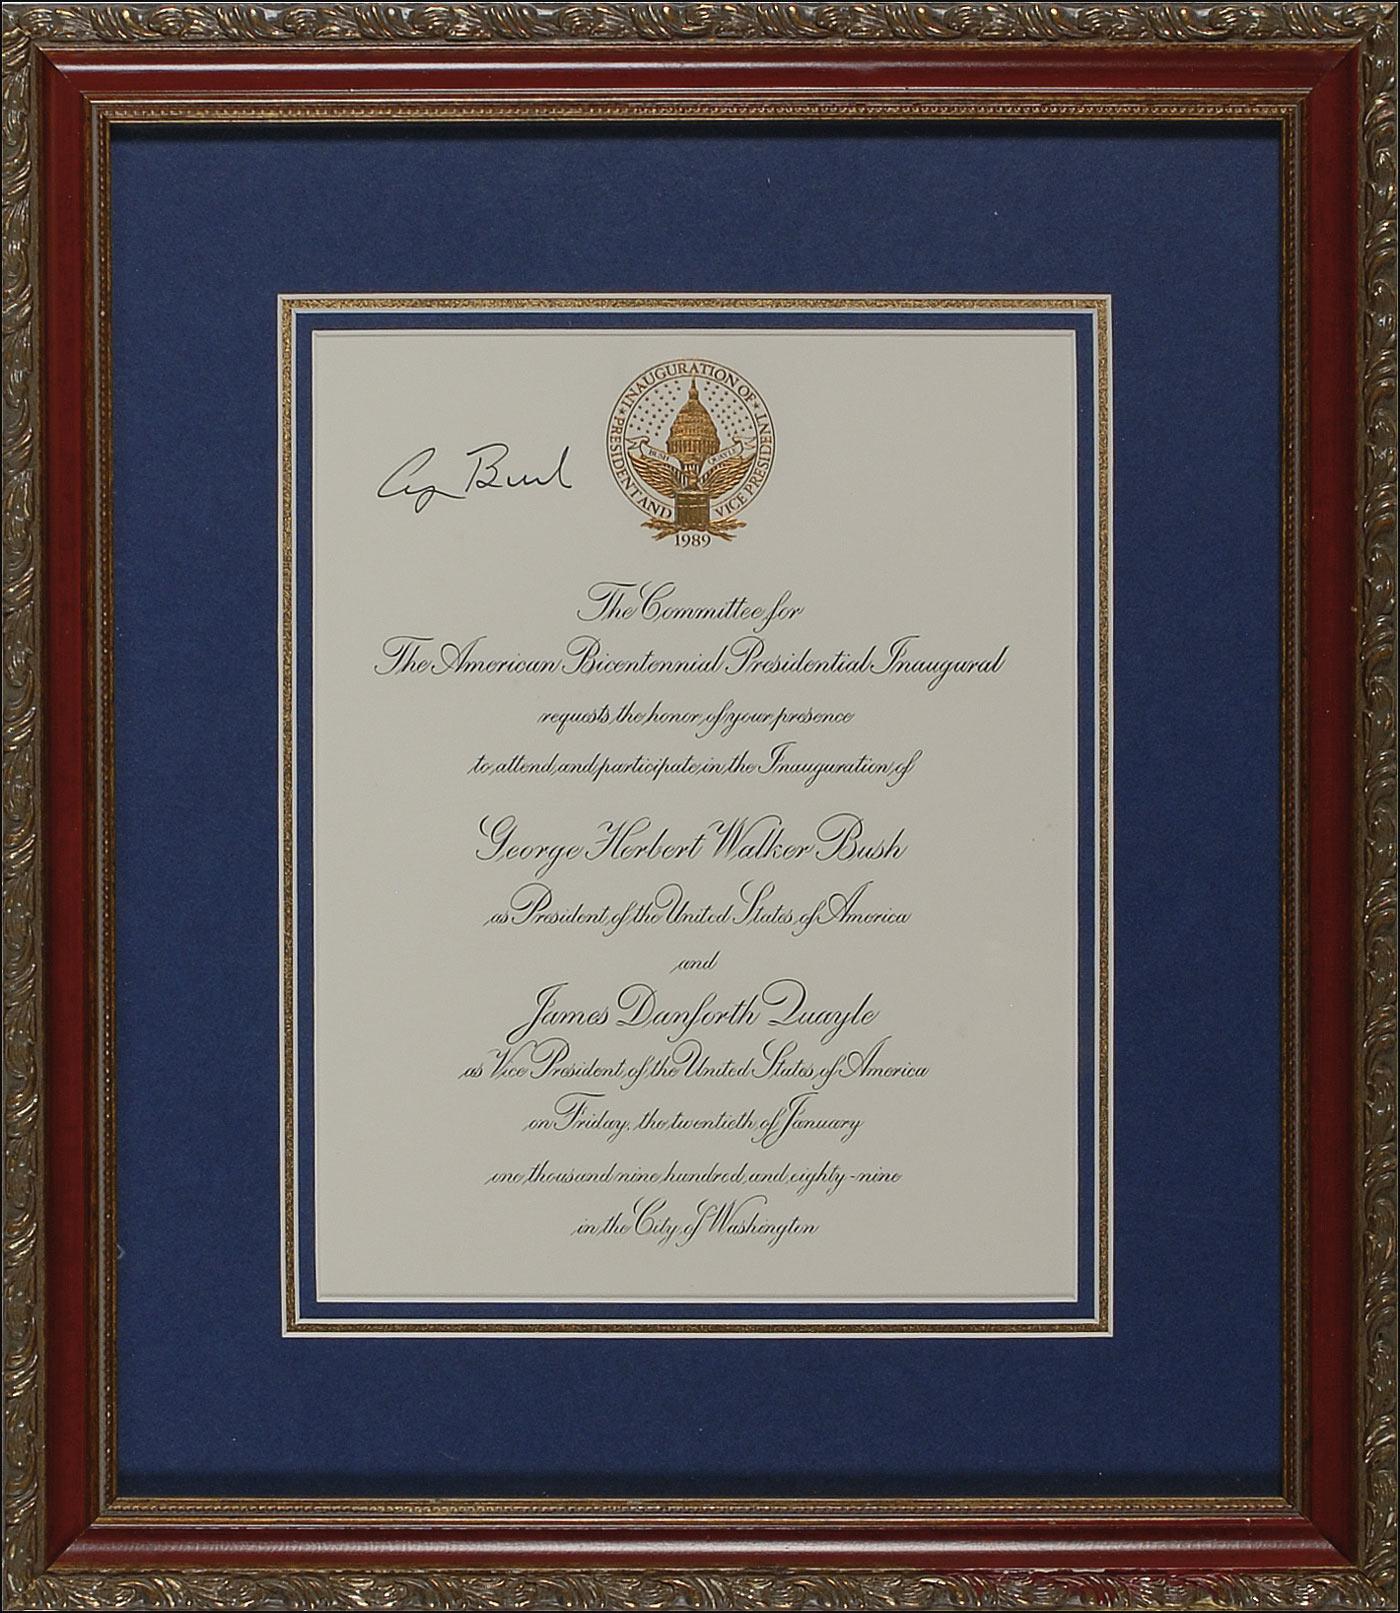 INAUGURATION OF
PRESIDENT AND VICE PRESIDENT
BUSH QUAYLE
1989
Bush
The Committee for
The American Bicentennial Presidential Inaugural
requests the honor of your presence
to attend and participate in the Inauguration of
George Herbert Walker Bush
as President of the United States of America
and
James Danforth Quayle
as Vice President of the United States of America
on Friday, the twentieth of January
one thousand nine hundred and eighty-nine
in the City of Washington